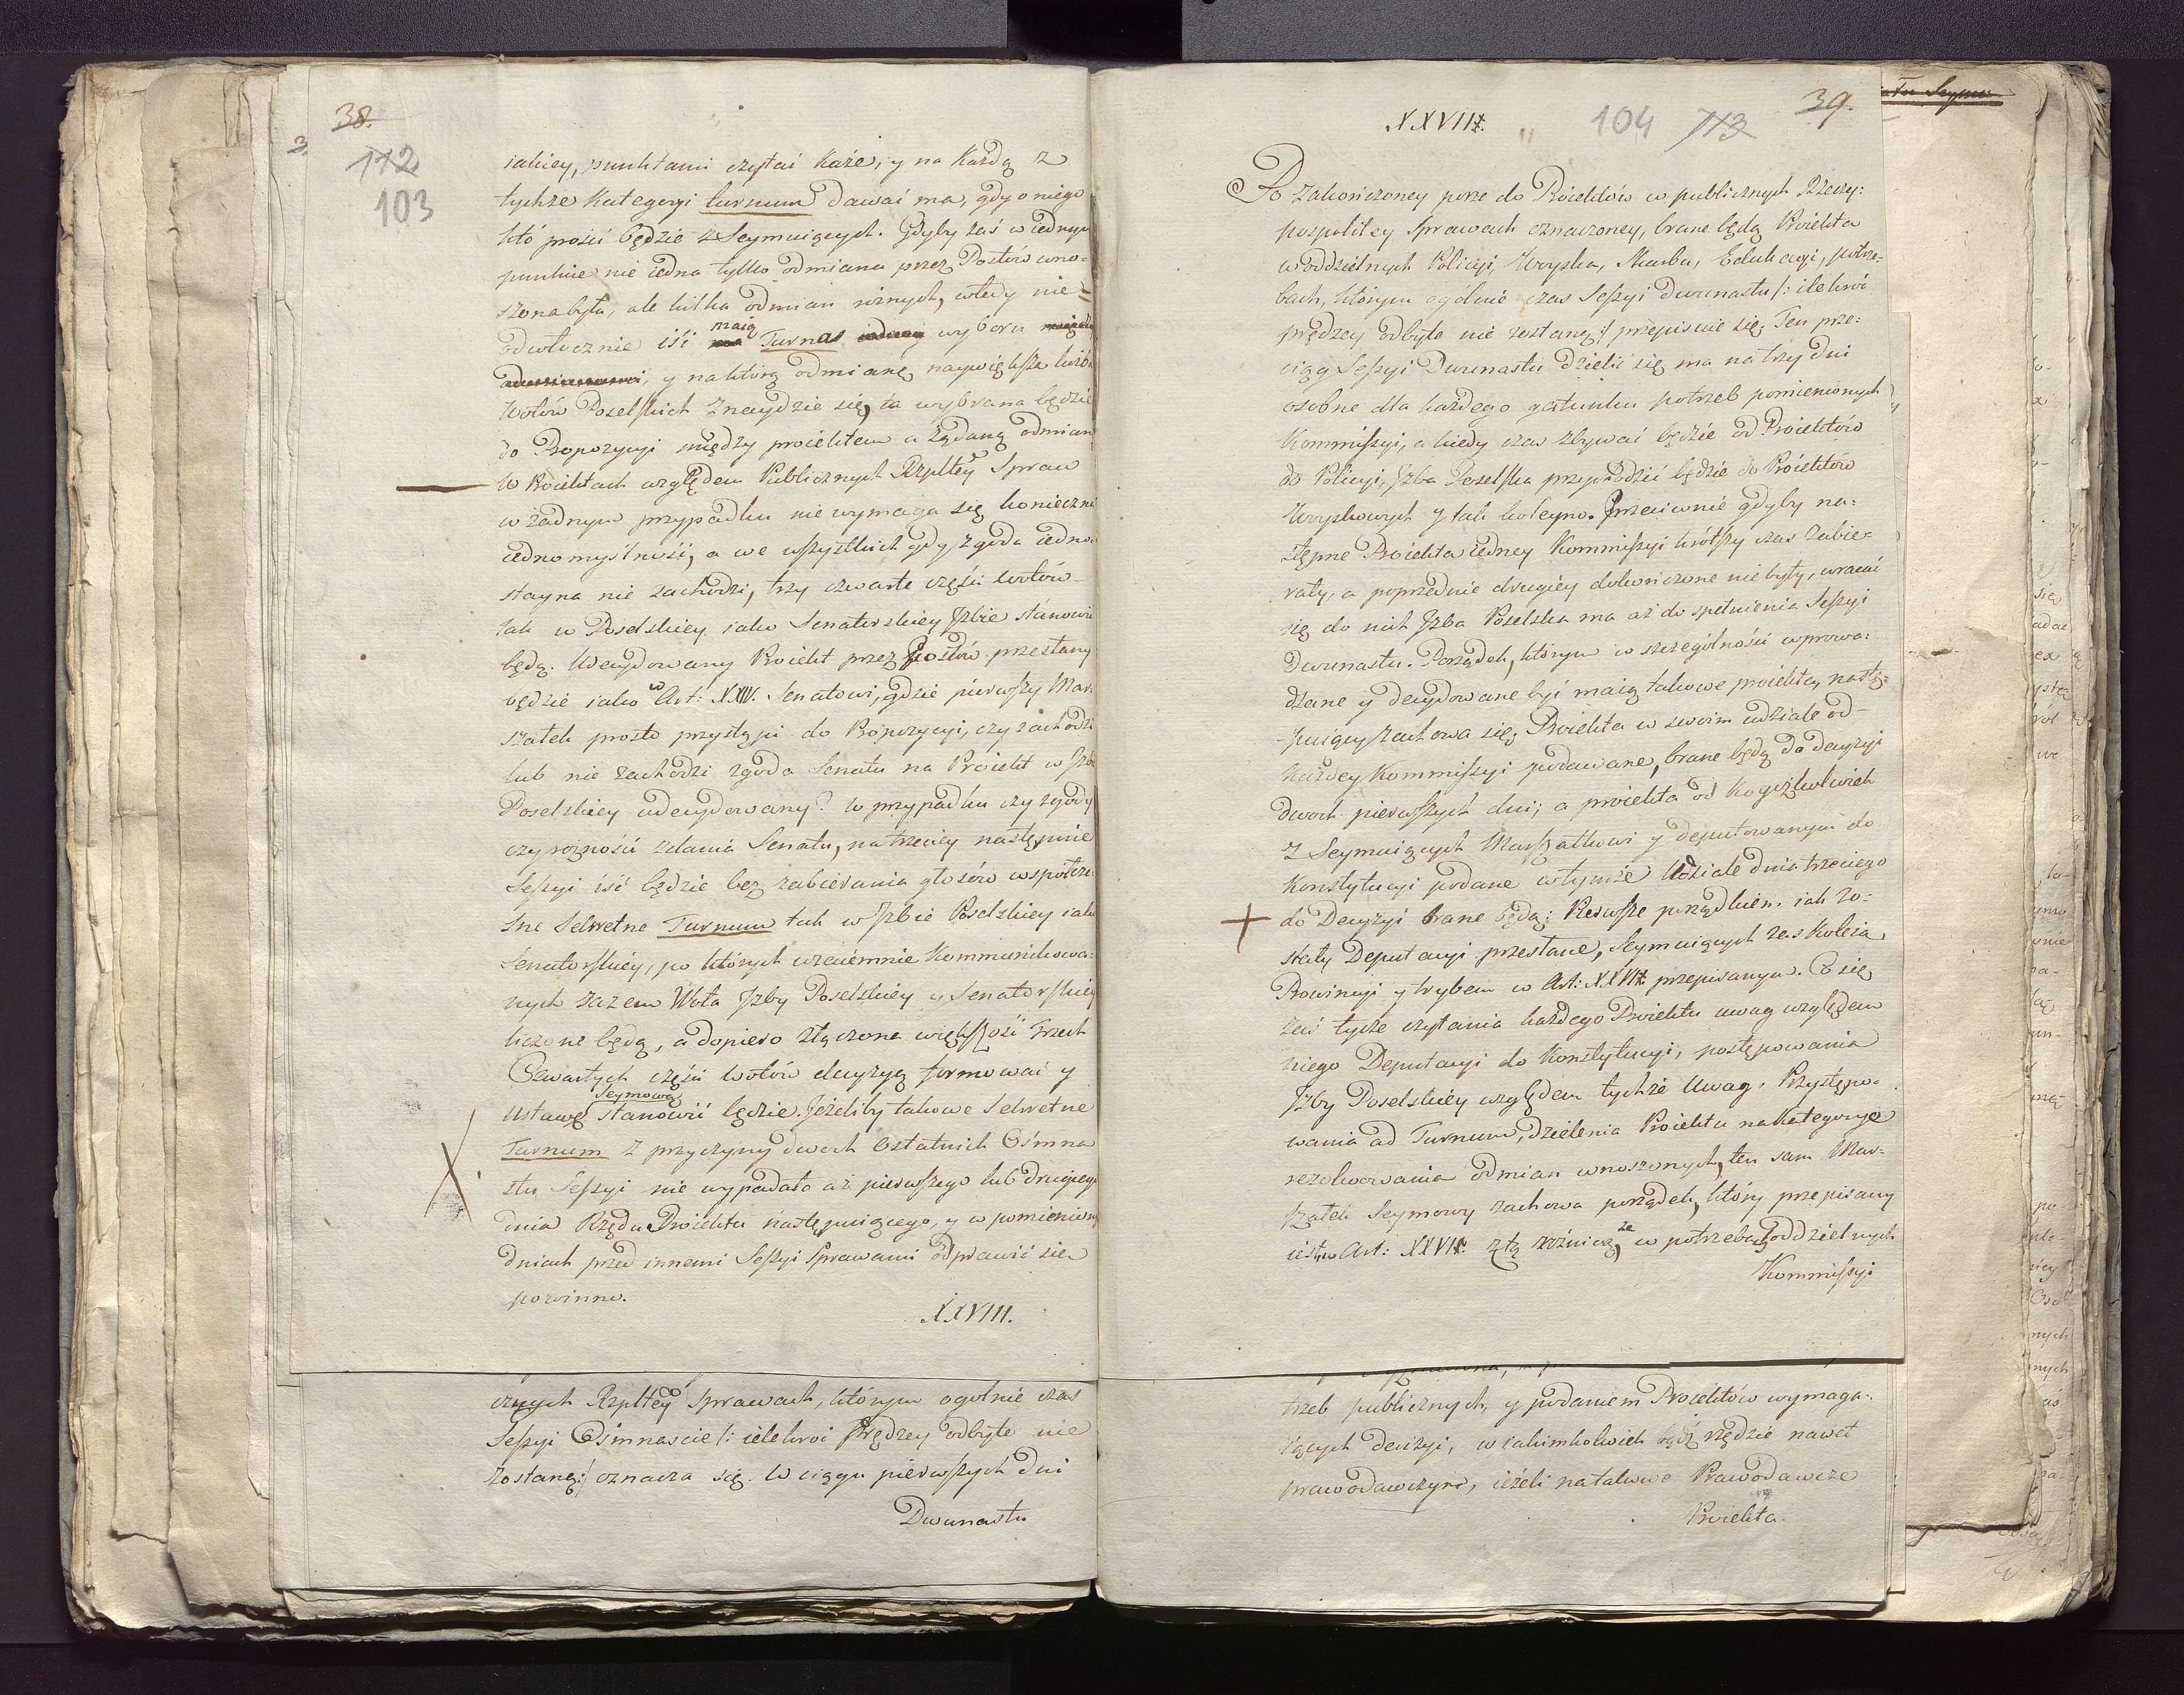 38.
112
103
iakiey, punktami czytać każe, y na każdą z
tychże kategoryi turnum dawać ma, gdy o niego
kto prosić będzie z Seymuiących. Gdyby zaś w iednym
punkcie nie iedna tylko odmiana przez Posłów wno=
szona była, ale kilka odmian różnych, wtedy nie=
odwłocznie iść maią Turnus wyboru
y na którą odmianę naywiększa liczba
Wotów Poselskich znaydzie się, ta wybrana będzie
do Propozycyi między proiektem a żądaną odmianą
W Proiektach względem Publicznych Rzpltey Spraw
w żadnym przypadku nie wymaga się koniecznie
iednomyślność, a we wszystkich gdy zgoda iedno=
stayna nie zachodzi, trzy czwarte części wotów
tak w Poselskiey iako Senatorskiey Jzbie stanowić
będą. Udecydowany Proiekt przez Posłów przesłany
będzie iako w Art: XXIV. Senatowi, gdzie pierwszy Mar=
szałek prosto przystąpi do Propozycyi, czy zachodzi
lub nie zachodzi zgoda Senatu na Proiekt w Jzbie
Poselskiey udecydowany? w przypadku czy zgody
czy rożności zdania Senatu, na trzeciey następnie
Sessyi iść będzie bez zabierania głosów współcze=
sne Sekretne Turnum tak w Jzbie Poselskiey iako
Senatorskiey, po których wzaiemnie kommunikowa=
nych razem Wota Jzby Poselskiey y Senatorskiey
liczone będą, a dopiero złączona większość trzech
Czwartych części wotów decyzyą formować y
Ustawę Seymową stanowić będzie. Jeżeliby takowe Sekretne
Turnum z przyczyny dwoch Ostatnich Ośmna
stu Sessyi nie wypadało aż pierwszego lub drugiego
dnia Rzędu Proiektu następuiącego, y w pomienionych
dniach przed innemi Sessyi Sprawami odprawić się
powinno.
XXVIII.
cznych Rzpltey Sprawach, którym ogolnie czas
Sessyi Ośmnaście /: ielekroć prędzey odbyte nie
zostaną :/ oznacza się. W ciągu pierwszych dni
Dwunastu
XXVIII.
104 113 39.
Po zakończoney porze do Proiektów w publicznych Rzeczy=
pospolitey Sprawach oznaczoney, brane będą Proiekta
w oddzielnych Policyi, Woyska, Skarbu, Edukacyi, potrze=
bach, którym ogólnie czas Sessyi dwunastu /: ilekroć
prędzey odbyte nie zostaną :/ przepisuie się. Ten prze=
ciąg Sessyi Dwunastu dzielić się ma na trzy dni
osobne dla każdego gatunku potrzeb pomienionych
Kommissyi, a kiedy czas zbywać będzie od Proiektów
do Policyi, Jzba Poselska przychodzić będzie do Proiektów
Woyskowych y tak koleyno. Przeciwnie gdyby na=
stępne Proiekta iedney Kommissyi krótszy czas zabie=
rały, a poprzednie drugiey dokończone nie były, wracać
się do nich Jzba Poselska ma aż do spełnienia Sessyi
Dwunastu. Porządek, którym w szczególności wprowa=
dzane y decydowane być maią takowe proiekta, nastę=
puiący zachowa się. Proiekta w swoim udziale od
każdey Kommissyi podawane, brane będą do decyzyi
dwoch pierwszych dni; a proiekta od kogożkolwiek
z Seymuiących Marszałkowi y deputowanym do
Konstytucyi podane w tymże Udziale dnia trzeciego
do Decyzyi brane będą: Pierwsze porządkiem iak zo=
stały Deputacyi przesłane, Seymuiących zas koleią
Prowincyi y trybem w Art: XXVII. przepisanym. Co się
zaś tycze czytania każdego Proiektu uwag względem
niego Deputacyi do Konstytucyi, postępowania
Jzby Poselskiey względem tychże Uwag, Przystępo=
wania ad Turnum, dzielenia Proiektu na kategorye
rezolwowania odmian wnoszonych, ten sam Mar=
szałek Seymowy zachowa porządek, który przepisany
iest w Art: XXVII. z tą rożnicą, że w potrzebach oddzielnych
Kommissyi
trzeb publicznych, y podaniem Proiektów wymaga=
iących decizyi, w iakimkolwiek bądź rzędzie nawet
prawodawczym, ieżeli na takowe Prawodawcze
Proiekta.